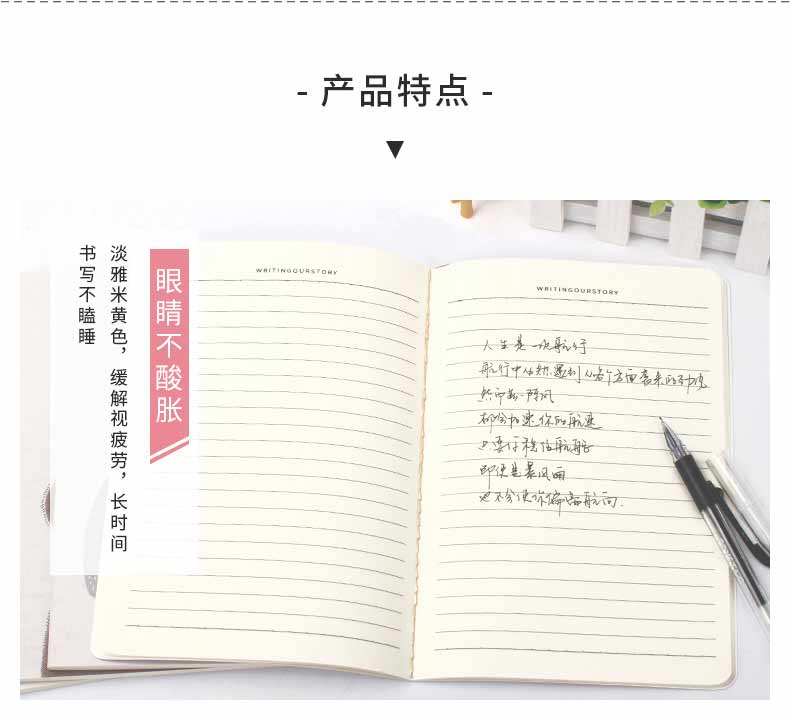 - 产品特点 -
眼睛不酸胀
淡雅米黄色，缓解视疲劳，长时间
书写不瞌睡
WRITINGOURSTORY
WRITINGOURSTORY
人生是一次航行
航行中必然遇到从各个方面袭来的劲风
然而每一阵风
都会加速你的航速
只要你稳住航舵
即使是暴风雨
也不会使你偏离航向.